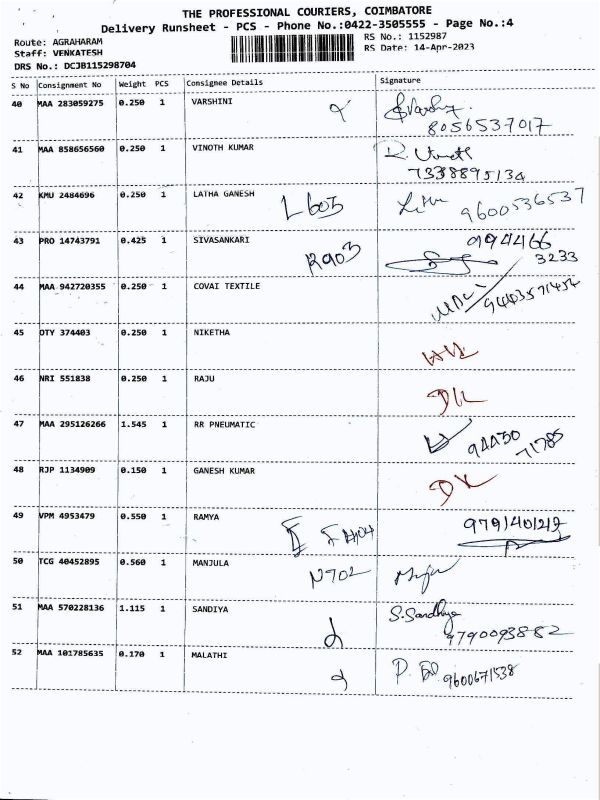 THE PROFESSIONAL COURIERS, COIMBATORE
Delivery Runsheet - PCS - Phone No.:0422-3505555 - Page No.:4
Route: AGRAHARAM
Staff: VENKATESH
DRS No.: DCJB115298704
RS No.: 1152987
RS Date: 14-Apr-2023
S No Consignment No Weight PCS Consignee Details Signature
40 MAA 283059275 0.250 1 VARSHINI
8056537017
41 MAA 858656560 0.250 1 VINOTH KUMAR
R. Vinoth
7338895134
42 KMU 2484696 0.250 1 LATHA GANESH L603 9600536537
43 PRO 14743791 0.425 1 SIVASANKARI R903 994466
3233
44 MAA 942720355 0.250 1 COVAI TEXTILE
45 OTY 374403 0.250 1 NIKETHA
46 NRI 551838 0.250 1 RAJU
47 MAA 295126266 1.545 1 RR PNEUMATIC 94430
71785
48 RJP 1134909 0.150 1 GANESH KUMAR
49 VPM 4953479 0.550 1 RAMYA
50 TCG 40452895 0.560 1 MANJULA N702
51 MAA 570228136 1.115 1 SANDIYA S.Sandhiya
9790093882
52 MAA 101785635 0.170 1 MALATHI 9600671538